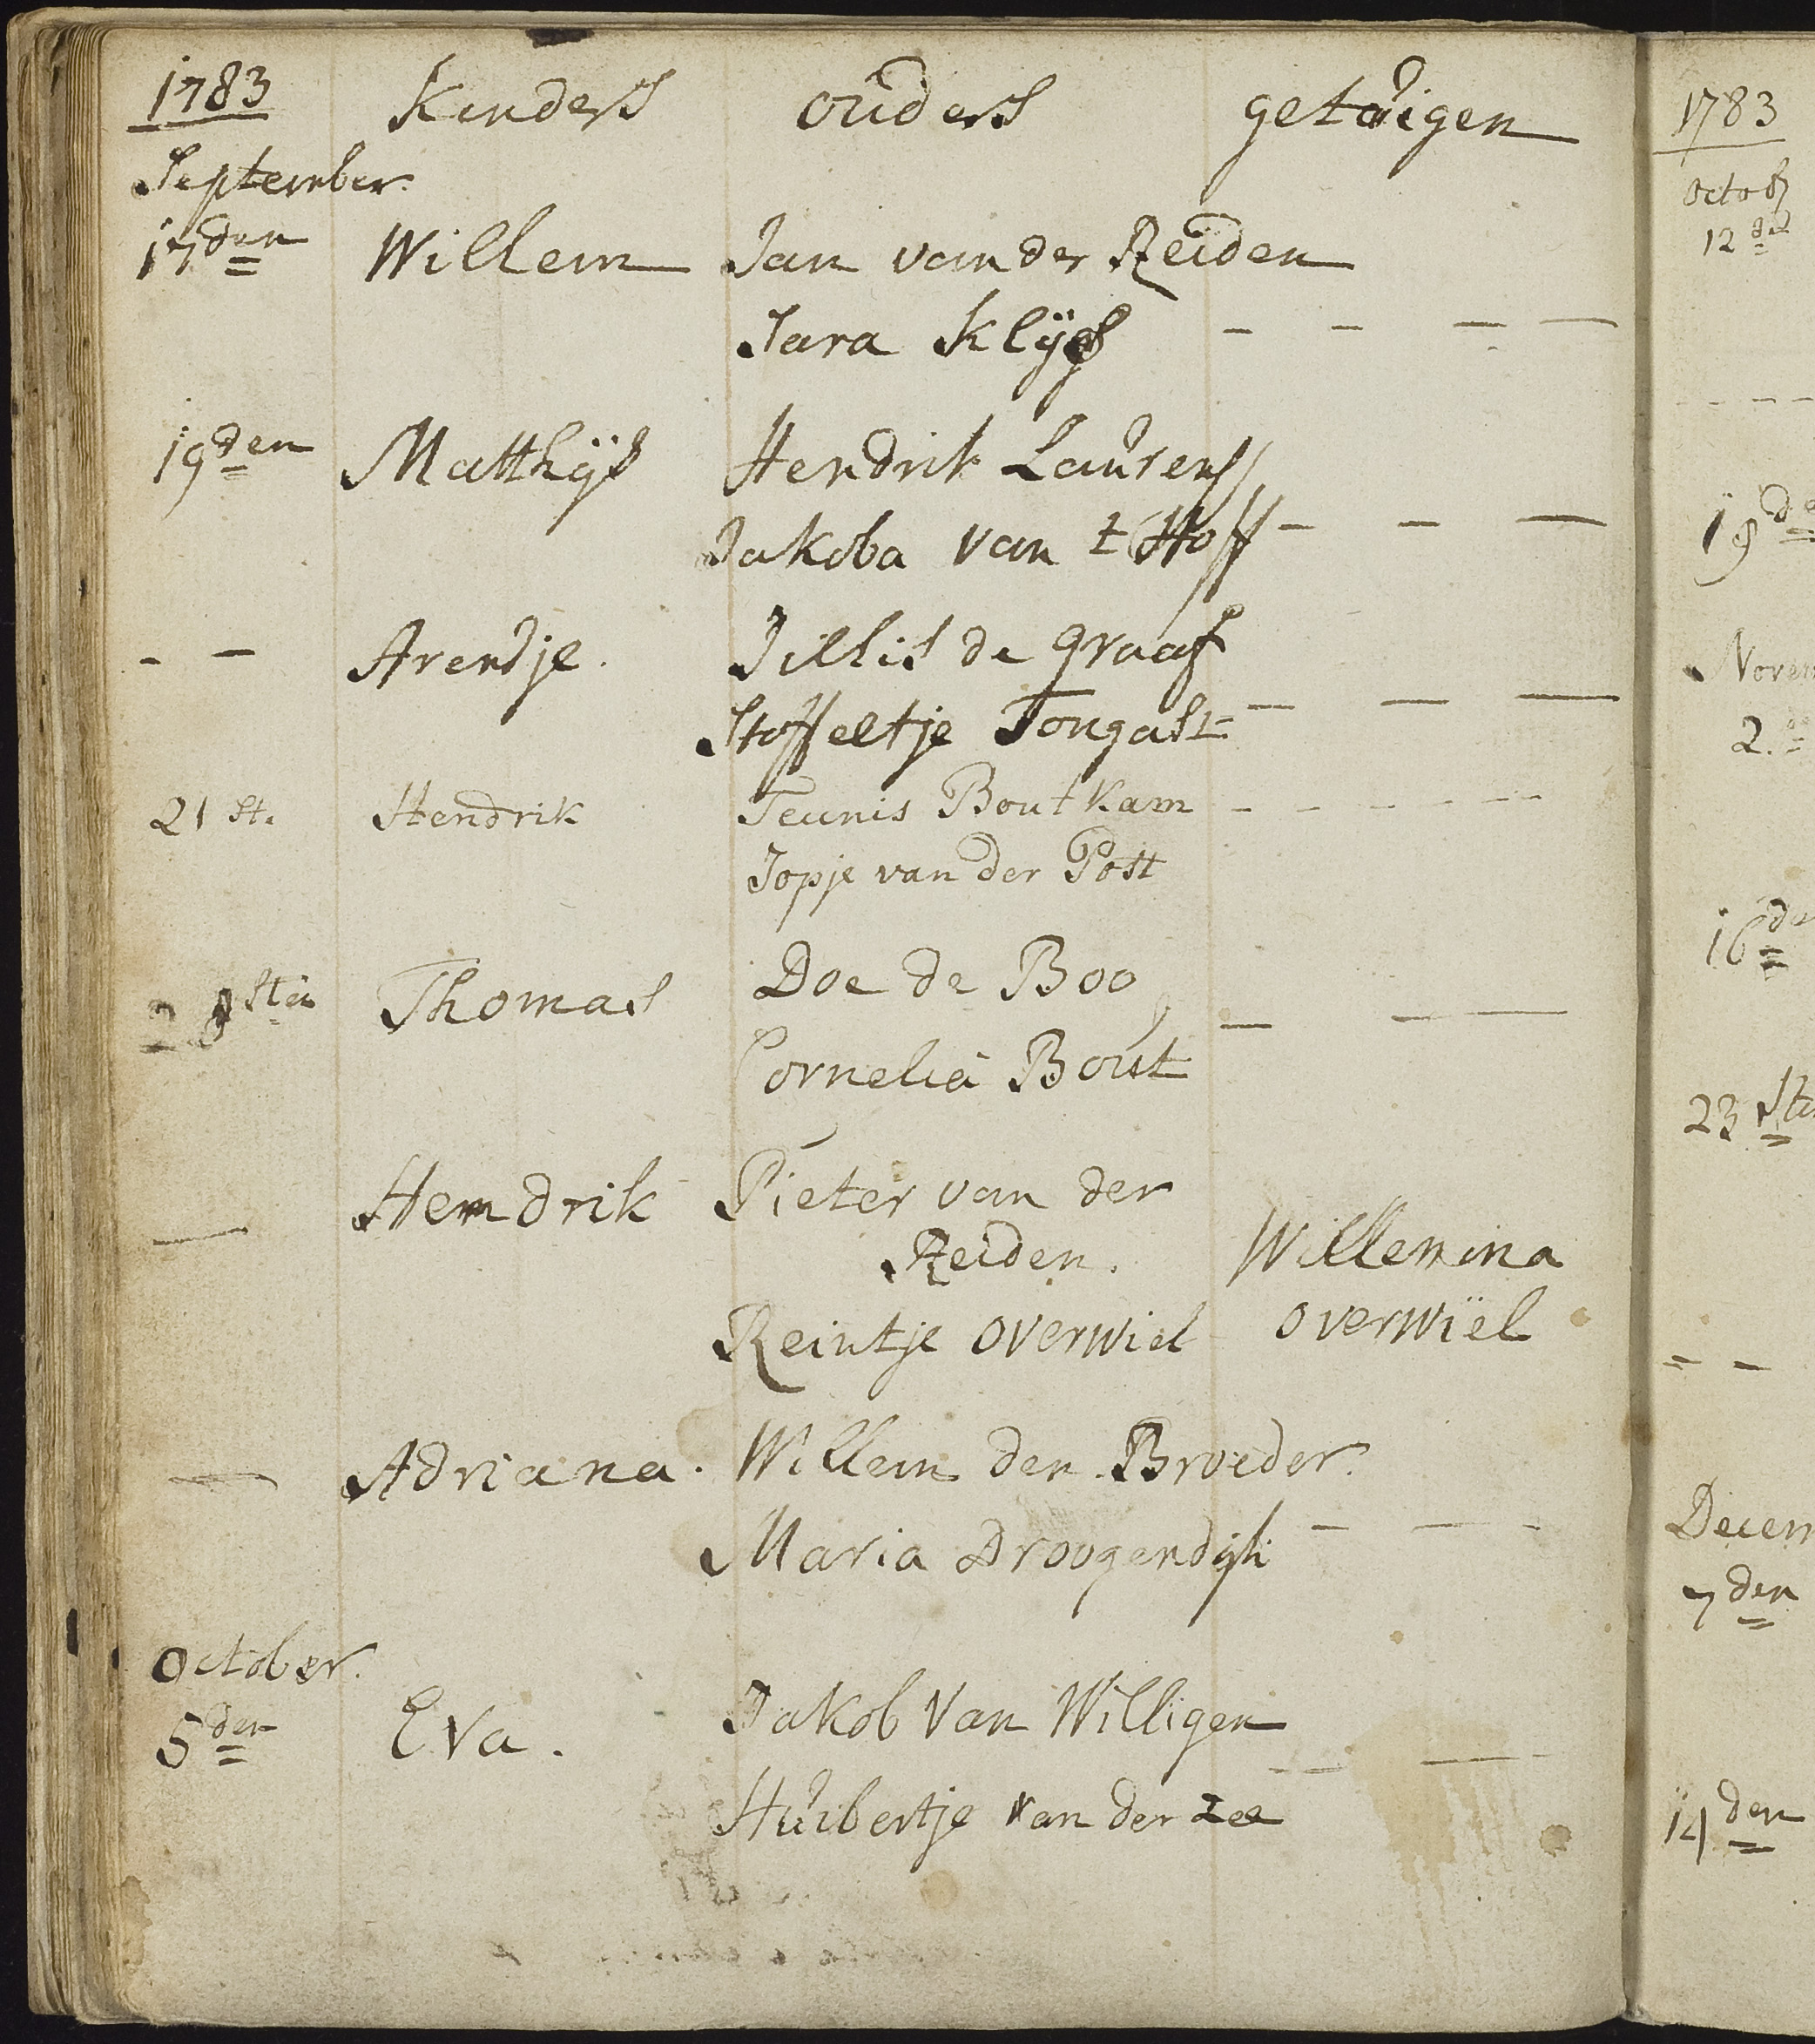 1783 Kinders ouders getuigen
September.
17den Willem Jan van der Reiden
Sara Klijs - - - -
19den Matthijs Hendrik Laurens
Jakoba van t Hoff - - -
- - Arendje. Jillis de Graaf
Stoffeltje Tongast - - -
21 st. Hendrik Teunis Boutkam - - - - - -
Jopje van der Post
28sten Thomas Doe de Boo
Cornelia Bout - - -
- Hendrik Pieter van der
Reiden. Willemina
Reintje overwiel overwiel
- Adriana. Willem den Broeder.
Maria Droogendijk - - -
October.
5den Eva. Jakob van Willigen
Huibertje van der zee - - -
1783
octob
12den
- - - -
19de
Novem
2.
16de
23 ste
- -
Decem
7den
14den